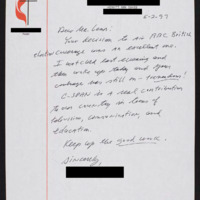 5-2-97
Dear Mr. Lamb,
Your decision to air BBC British
election coverage was an excellent one.
I watched last evening and
then woke up today and your
coverage was still on - tremendous!
C-SPAN is a real contribution
to our country in terms of
television, communication, and
education.
Keep up the good work.
Sincerely,